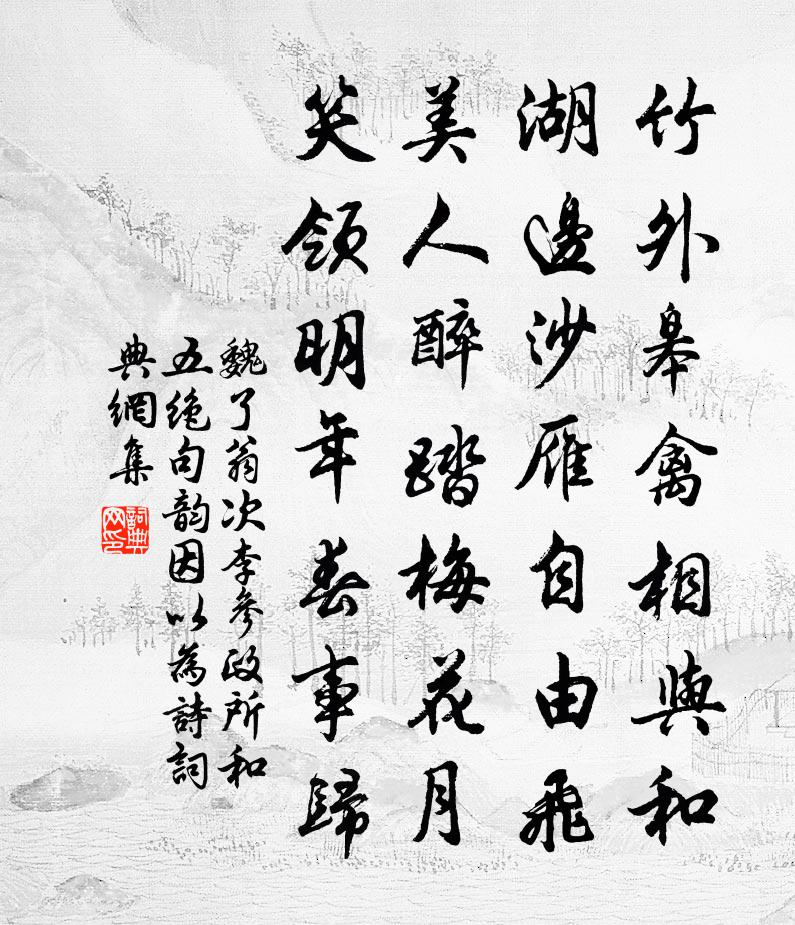 竹外皋禽相與和
湖邊沙雁自由飛
美人醉踏梅花月
笑領明年春事歸
魏了翁次李參政所和
五絶句韵因以為詩詞
典網集
詞典網印